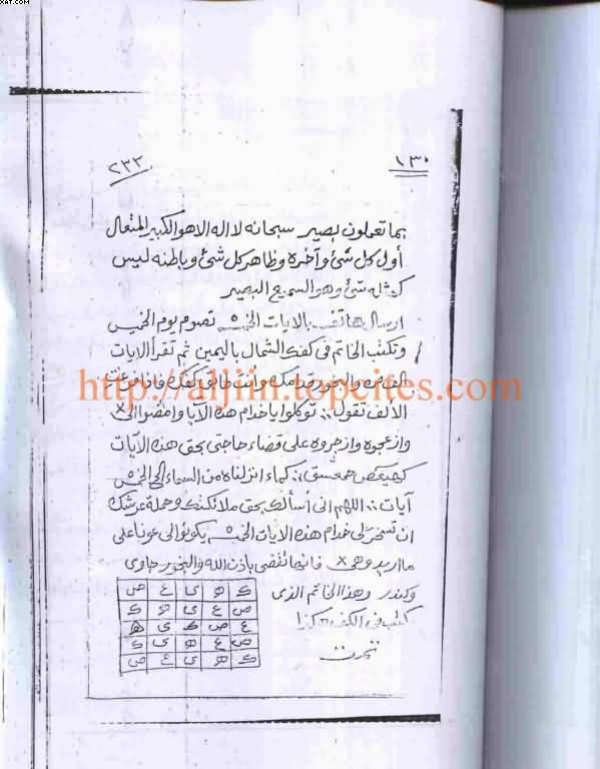 xat.com
١٣٠
٢٣٢
بما تعملون بصير سبحانه لا اله الا هو الكبير المتعال
أول كل شئ وآخره وظاهر كل شئ وباطنه ليس
كمثله شئ وهو السميع البصير
ارسال هاتف بالايات الخمسه تصوم يوم الخميس
وتكتب الخاتم في كفك الشمال باليمين ثم تقرأ الايات
الف مره والبخور قدامك وانت كفك فاذا فرغت
الالف تقول توكلوا يا خدام هذه الآيا وامضوا الى
وازعجوه وازجروه على قضاء حاجتي بحق هذه الآيات
كهيعص حمعسق كماء انزلناه من السماء الى الخمس
آيات اللهم انى أسألك بحق ملائكتك وحملة عرشك
ان تسخر لى خدام هذه الايات الخمسه يكونوا لى عونا على
ما اريد وهى فانها تقضى باذن الله والبخور جاوى
وكندر وهذا الخاتم الذى
كتب فى الكف هكذا
تمت
ك ه ى ع ص
ص ع ى ه ك
ع ص ك ى ه
ص ع ه ى ك
ك ه ى ع ص
http://aljiin.topcites.com